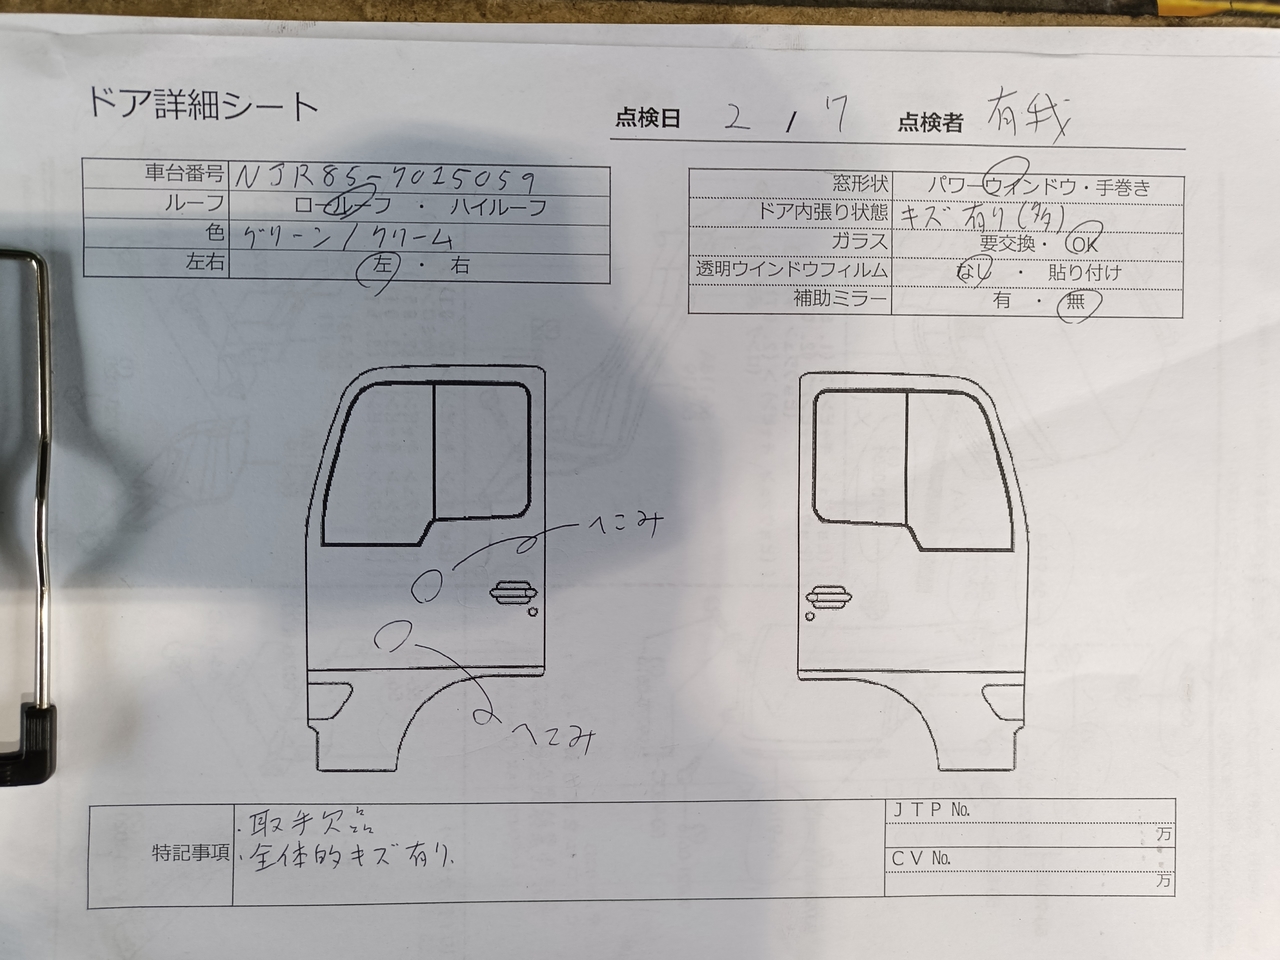 ドア詳細シート
点検日 2 / 7 点検者 有我
車台番号 NJR85-7015059
ルーフ ロールーフ ・ ハイルーフ
色 グリーン/クリーム
左右 左 ・ 右
窓形状 パワーウインドウ・手巻き
ドア内張り状態 キズ有り(多)
ガラス 要交換・ OK
透明ウインドウフィルム なし ・ 貼り付け
補助ミラー 有 ・ 無
へこみ
へこみ
特記事項
・取手欠品
・全体的キズ有り.
JTP No.
万
CV No.
万